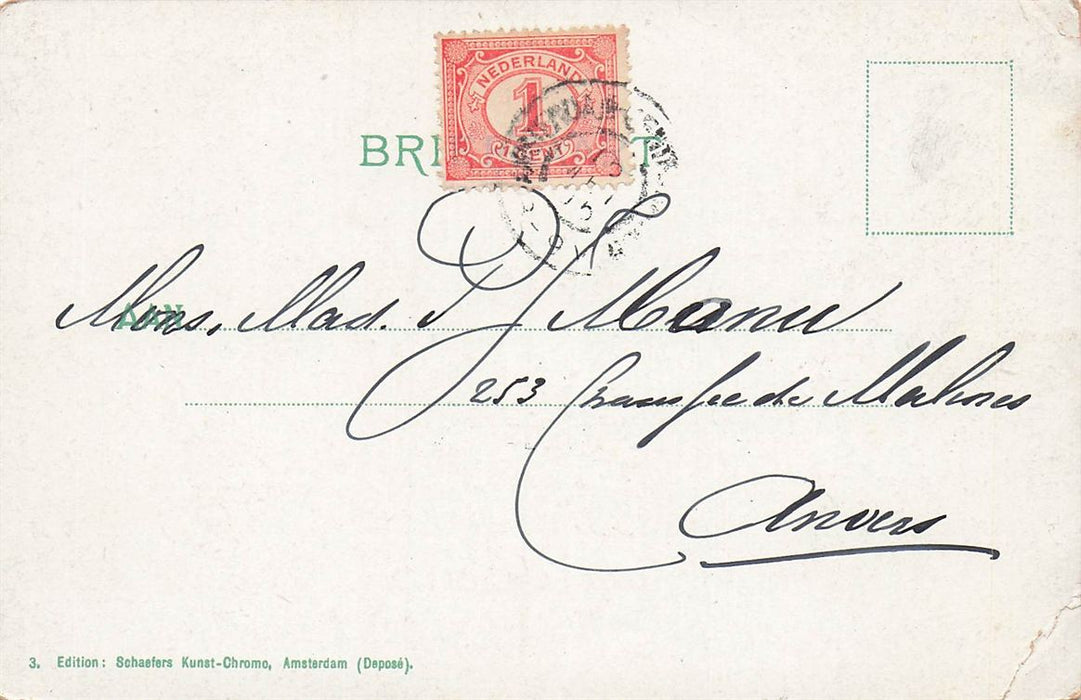 NEDERLAND
1
1 CENT
BRI T
AAN
Mons, Mad. J Manu
253 Chaussée de Malines
Anvers
3. Edition: Schaefers Kunst-Chromo, Amsterdam (Deposé).